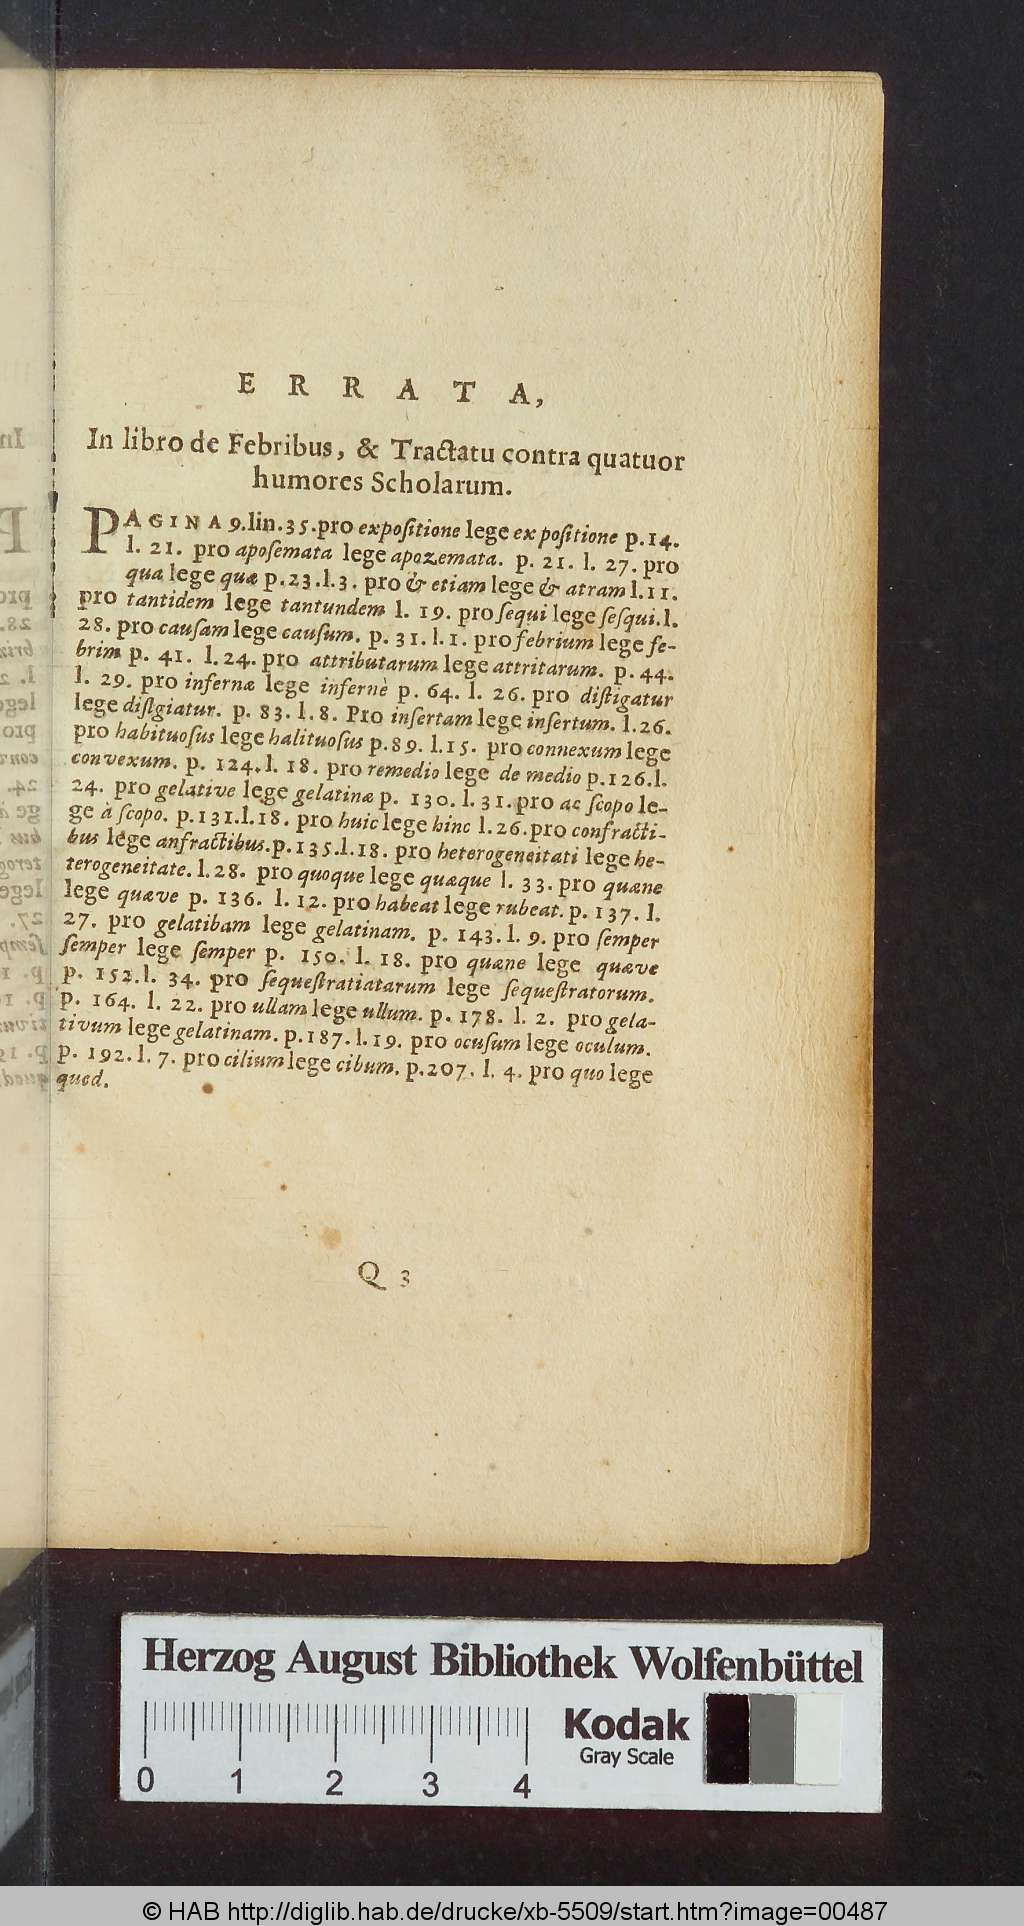 ERRATA,
In libro de Febribus, & Tractatu contra quatuor
humores Scholarum.
PAGINA 9.lin.35.pro expoſitione lege ex poſitione p.14.
l. 21. pro apoſemata lege apozemata. p. 21. l. 27. pro
qua lege quæ p.23.l.3. pro & etiam lege & atram l.11.
pro tantidem lege tantundem l. 19. pro ſequi lege ſeſqui.l.
28. pro cauſam lege cauſum. p. 31. l. 1. pro febrium lege fe-
brim p. 41. l.24. pro attributarum lege attritarum. p. 44.
l. 29. pro infernæ lege infernè p. 64. l. 26. pro diſtigatur
lege diſgiatur. p. 83. l. 8. Pro inſertam lege inſertum. l.26.
pro habituoſus lege halituoſus p.89. l.15. pro connexum lege
convexum. p. 124. l. 18. pro remedio lege de medio p.126.l.
24. pro gelative lege gelatinæ p. 130. l. 31. pro ac ſcopo le-
ge à ſcopo. p.131.l.18. pro huic lege hinc l.26.pro confracti-
bus lege anfractibus.p.135.l.18. pro heterogeneitati lege he-
terogeneitate. l.28. pro quoque lege quæque l. 33. pro quæne
lege quæve p. 136. l. 12. pro habeat lege rubeat. p. 137. l.
27. pro gelatibam lege gelatinam. p. 143. l. 9. pro ſemper
ſemper lege ſemper p. 150. l. 18. pro quæne lege quæve
p. 152.l. 34. pro ſequeſtratiatarum lege ſequeſtratorum.
p. 164. l. 22. pro ullam lege ullum. p. 178. l. 2. pro gela-
tivum lege gelatinam. p.187. l.19. pro ocuſum lege oculum.
p. 192. l. 7. pro cilium lege cibum. p.207. l. 4. pro quo lege
quod.
Q 3
Herzog August Bibliothek Wolfenbüttel
Kodak
Gray Scale
0 1 2 3 4
© HAB http://diglib.hab.de/drucke/xb-5509/start.htm?image=00487